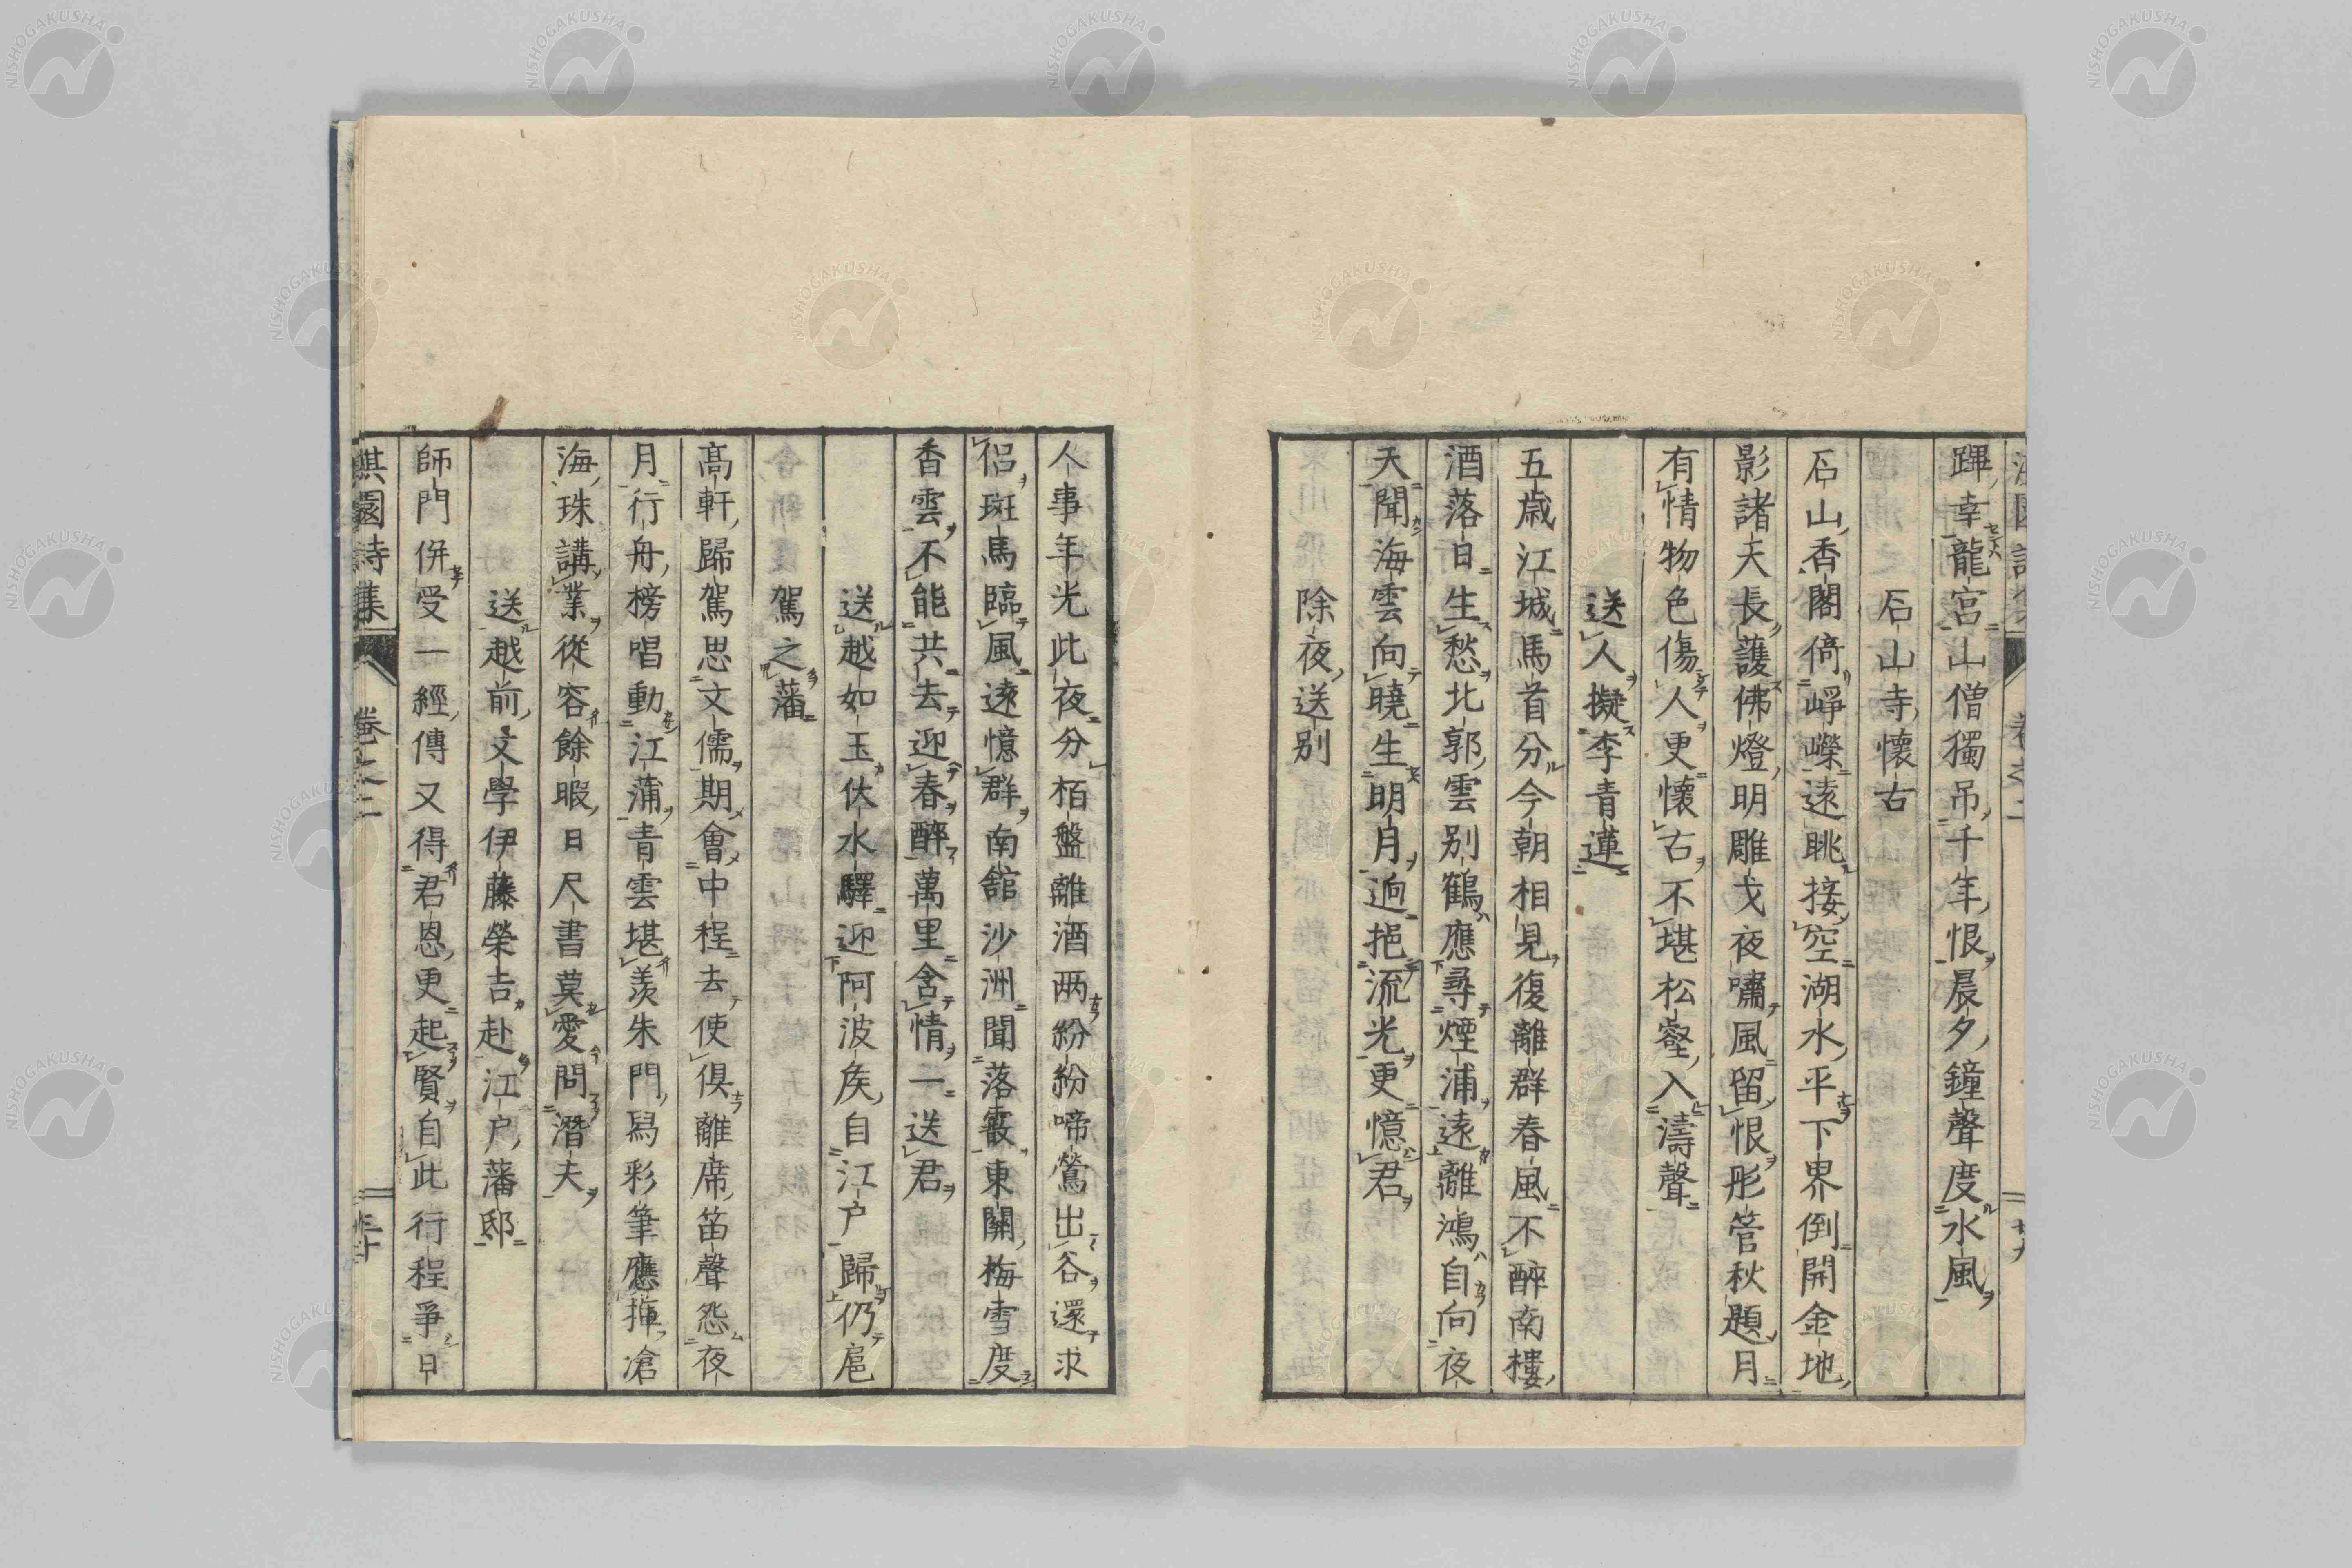 蹕幸龍宮山僧獨吊千年恨晨夕鐘聲度水風
石山寺懷古
石山香閣倚崢嶸遠眺接空湖水平下界倒開金地
影諸天長護佛燈明雕戈夜嘯風留恨彤管秋題月
有情物色傷人更懷古不堪松壑入濤聲
送人擬李青蓮
五歲江城馬首分今朝相見復離群春風不醉南樓
酒落日生愁北郭雲別鶴應尋煙浦遠離鴻自向夜
天聞海雲向曉生明月逈挹流光更憶君
除夜送別
人事年光此夜分栢盤離酒兩紛紛啼鶯出谷還求
侶斑馬臨風遠憶群南舘沙洲聞落霰東關梅雪度
香雲不能共去迎春醉萬里含情一送君
送越如玉伏水驛迎阿波矦自江戶歸仍扈
駕之藩
高軒歸駕思文儒期會中程去使俱離席笛聲怨夜
月行舟榜唱動江蒲青雲堪羨朱門舄彩筆應揮滄
海珠講業從容餘暇日尺書莫愛問潛夫
送越前文學伊藤榮吉赴江戶藩邸
師門併受一經傳又得君恩更起賢自此行程爭日
淇園詩集 卷之二 三十